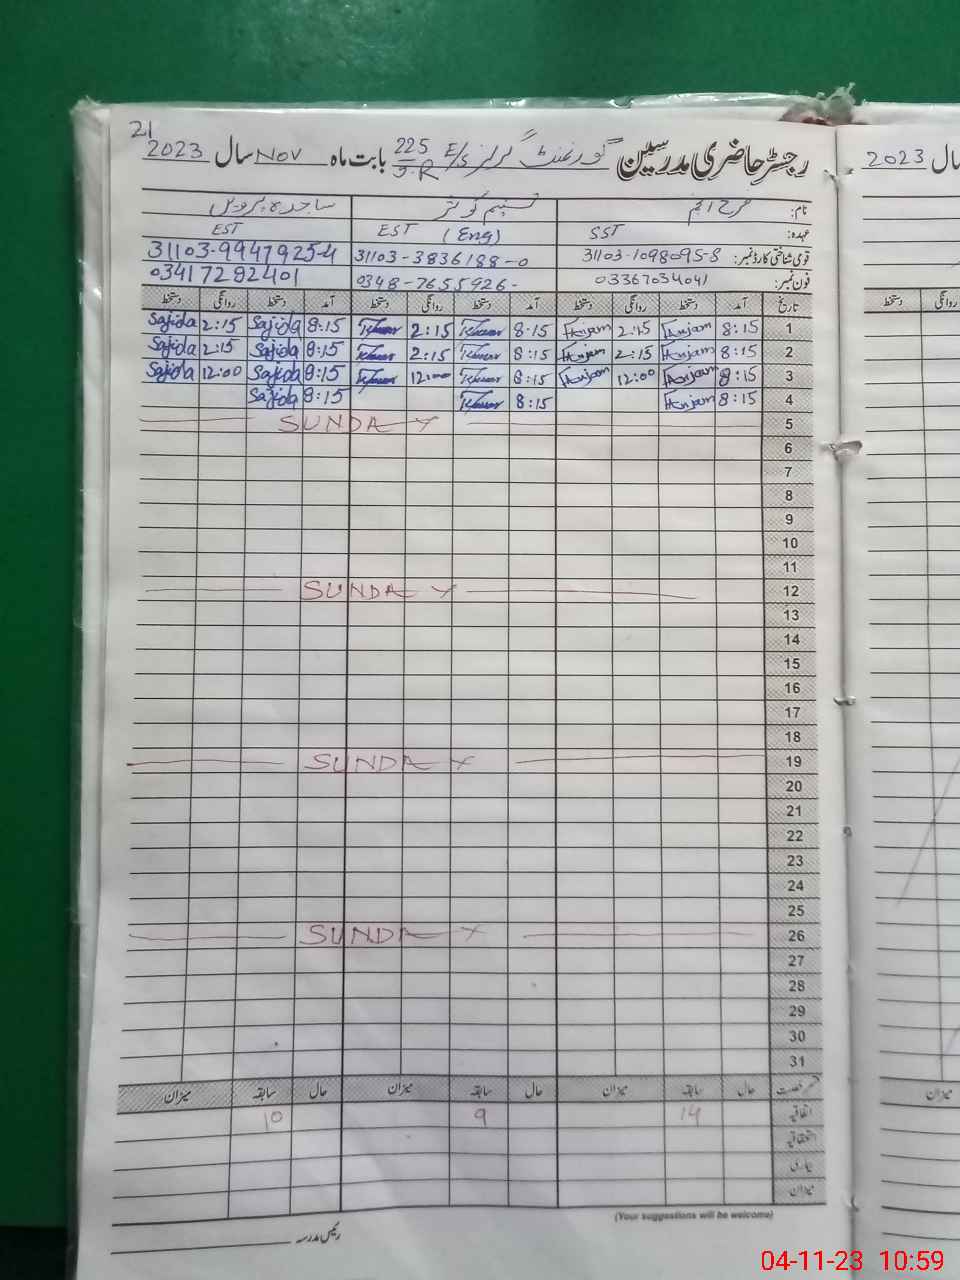 21
رجسٹر حاضری مدرسین گورنمنٹ گرلز E/S 225/9.R بابت ماہ Nov سال 2023
نام: فرح انجم تسنیم کوثر ساجدہ پروین
عہدہ: SST EST (Eng) EST
قومی شناختی کارڈ نمبر: 31103-1098095-8 31103-3836188-0 31103-9947925-4
فون نمبر: 03367034041 0348-7655926- 03417292401
تاریخ آمد دستخط روانگی دستخط آمد دستخط روانگی دستخط آمد دستخط روانگی دستخط
1 8:15 Anjam 2:15 Anjam 8:15 2:15 8:15 Sajida 2:15 Sajida
2 8:15 Anjam 2:15 Anjam 8:15 2:15 8:15 Sajida 2:15 Sajida
3 8:15 Anjam 12:00 Anjam 8:15 12:00 8:15 Sajida 12:00 Sajida
4 8:15 Anjam 8:15 8:15 Sajida
5 SUNDAY
6
7
8
9
10
11
12 SUNDAY
13
14
15
16
17
18
19 SUNDAY
20
21
22
23
24
25
26 SUNDAY
27
28
29
30
31
حال سابقہ میزان حال سابقہ میزان حال سابقہ میزان
اتفاقیہ 14 9 10
بیماری
میزان
(Your suggestions will be welcome)
رئیس مدرسہ
2023 سال
دستخط روانگی
میزان
04-11-23 10:59